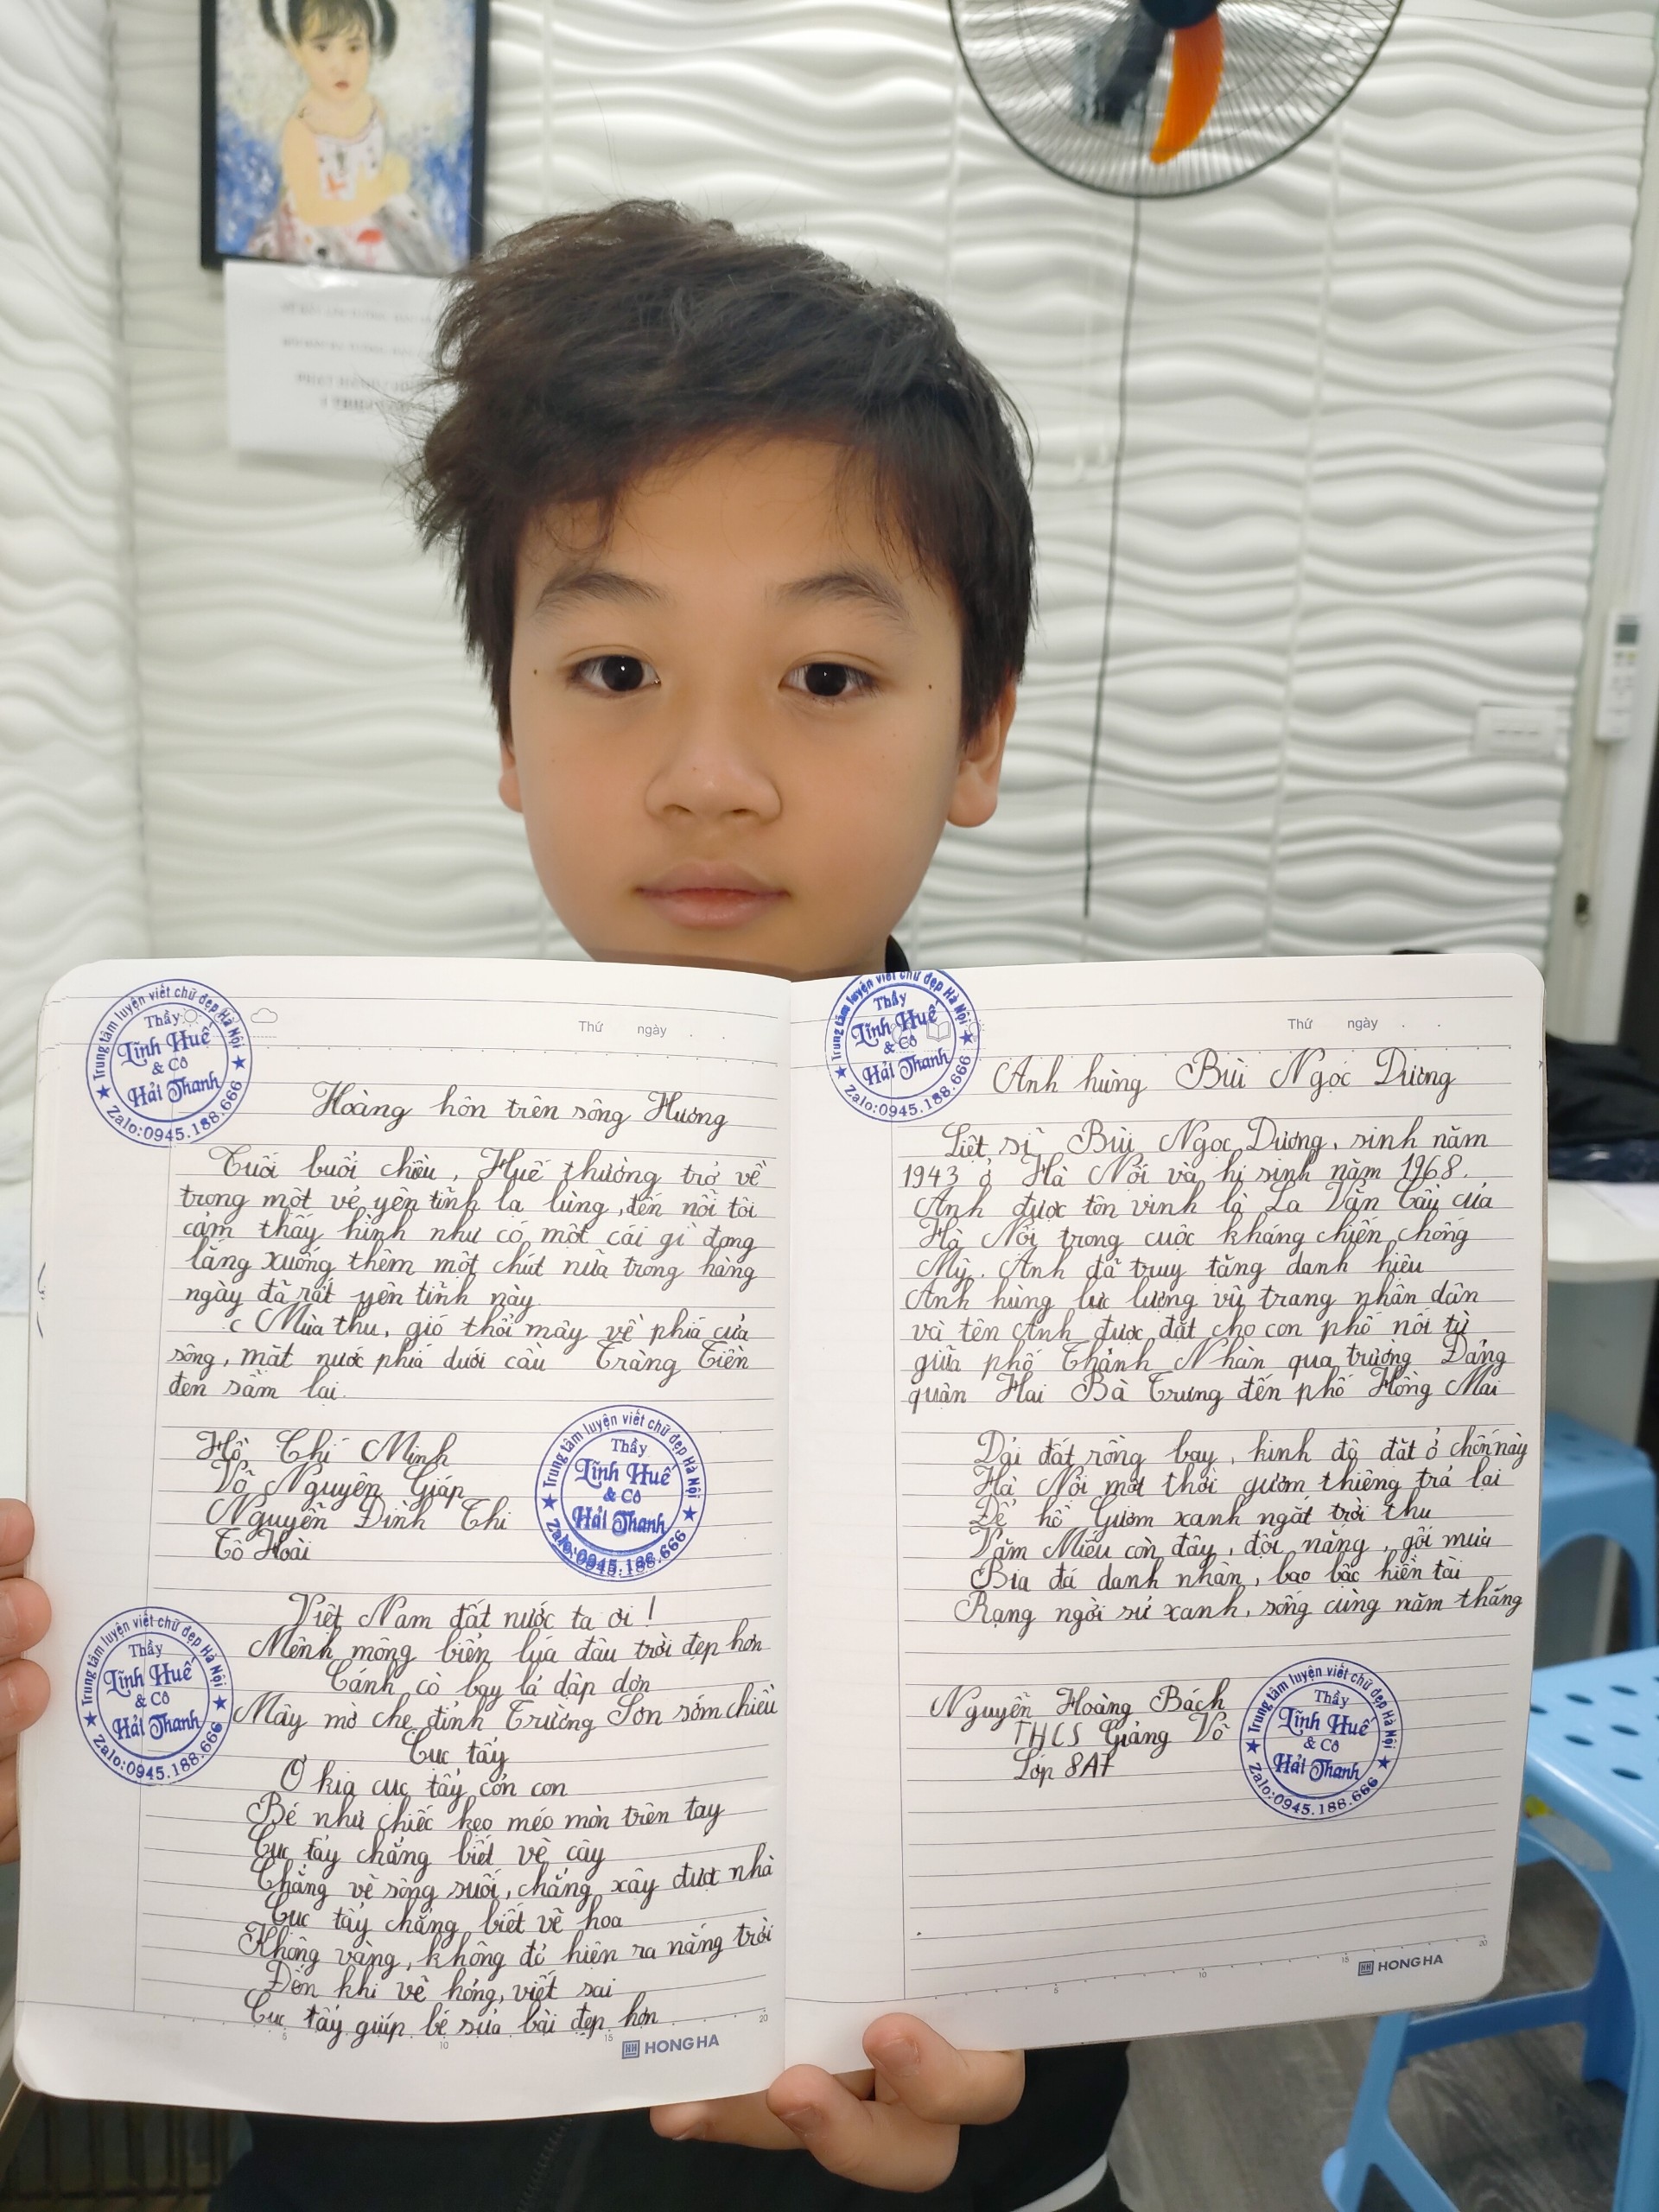 Trung tâm luyện viết chữ đẹp Hà Nội
Thầy
Lĩnh Huế
& Cô
Hải Thanh
Zalo:0945.188.666
Thứ ngày . .
Hoàng hôn trên sông Hương
Cuối buổi chiều, Huế thường trở về
trong một vẻ yên tĩnh lạ lùng, đến nỗi tôi
cảm thấy hình như có một cái gì đang
lắng xuống thêm một chút nữa trong hàng
ngày đã rất yên tĩnh này
Mùa thu, gió thổi mây về phía cửa
sông, mặt nước phía dưới cầu Tràng Tiền
đen sầm lại.
Hồ Chí Minh
Võ Nguyên Giáp
Nguyễn Đình Thi
Tô Hoài
Trung tâm luyện viết chữ đẹp Hà Nội
Thầy
Lĩnh Huế
& Cô
Hải Thanh
Zalo:0945.188.666
Việt Nam đất nước ta ơi!
Mênh mông biển lúa đâu trời đẹp hơn
Cánh cò bay lả dập dờn
Mây mờ che đỉnh Trường Sơn sớm chiều
Trung tâm luyện viết chữ đẹp Hà Nội
Thầy
Lĩnh Huế
& Cô
Hải Thanh
Zalo:0945.188.666
Cục tẩy
Ơ kìa cục tẩy cỏn con
Bé như chiếc kẹo méo mòn trên tay
Cục tẩy chẳng biết vẽ cây
Chẳng vẽ sông suối, chẳng xây được nhà
Cục tẩy chẳng biết vẽ hoa
Không vàng, không đỏ hiện ra nắng trời
Đến khi vẽ hỏng, viết sai
Cục tẩy giúp bé sửa bài đẹp hơn
5 10 15 20
HONG HA
Trung tâm luyện viết chữ đẹp Hà Nội
Thầy
Lĩnh Huế
& Cô
Hải Thanh
Zalo:0945.188.666
Thứ ngày . .
Anh hùng Bùi Ngọc Dương
Liệt sĩ Bùi Ngọc Dương, sinh năm
1943 ở Hà Nội và hi sinh năm 1968.
Anh được tôn vinh là La Văn Cầu của
Hà Nội trong cuộc kháng chiến chống
Mỹ. Anh đã truy tặng danh hiệu
Anh hùng lực lượng vũ trang nhân dân
và tên Anh được đặt cho con phố nối từ
giữa phố Thanh Nhàn qua trường Đảng
quận Hai Bà Trưng đến phố Hồng Mai
Dải đất rồng bay, kinh đô đặt ở chốn này
Hà Nội một thời gươm thiêng trả lại
Để hồ Gươm xanh ngắt trời thu
Văn Miếu còn đây, đội nắng, gối mưa
Bia đá danh nhân, bao bậc hiền tài
Rạng ngời sử xanh, sống cùng năm tháng
Nguyễn Hoàng Bách
THCS Giảng Võ
Lớp 8A7
Trung tâm luyện viết chữ đẹp Hà Nội
Thầy
Lĩnh Huế
& Cô
Hải Thanh
Zalo:0945.188.666
5 10 15 20
HONG HA